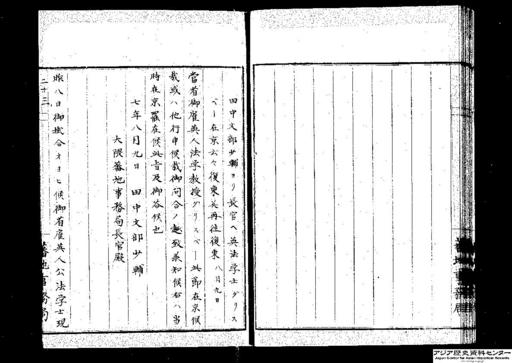 田中文部少輔ヨリ長官ヘ英法学士グリス
ベー在京云々復東并再往復東 八月九日
当省御雇英人法学教授グリスベー此節在京候
哉或ハ他行中候哉御問合ノ趣致承知候右ハ当
時在京罷在候此旨及御答候也
七年八月九日 田中文部少輔
大隈蕃地事務局長官殿
昨八日御掛合オヨヒ候御省雇英人公法学士現
二十三
蕃地事務局
アジア歴史資料センター
Japan Center for Asian Historical Records